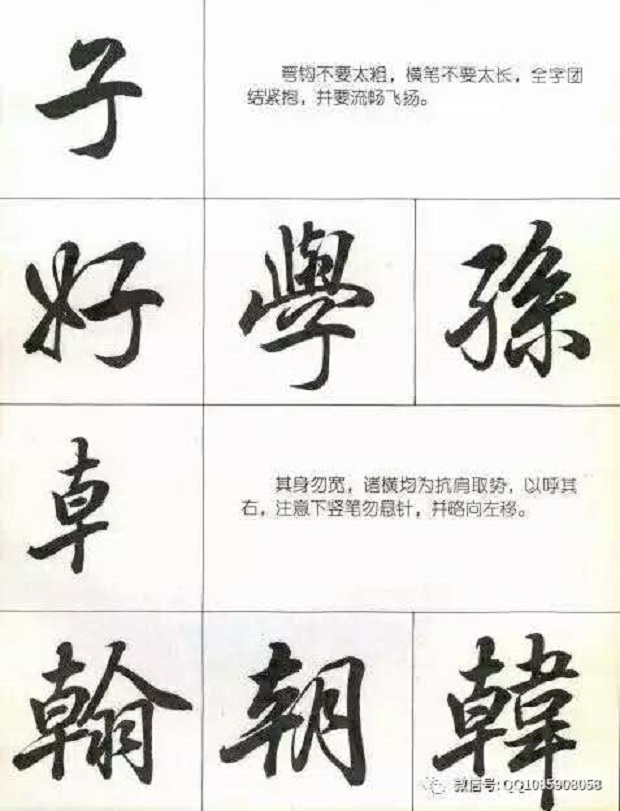 子
弯钩不要太粗，横笔不要太长，全字团
结紧抱，并要流畅飞扬。
好 學 孫
卓
其身勿宽，诸横均为抗肩取势，以呼其
右，注意下竖笔勿悬针，并略向左移。
翰 朝 韓
微信号:QQ1085908058